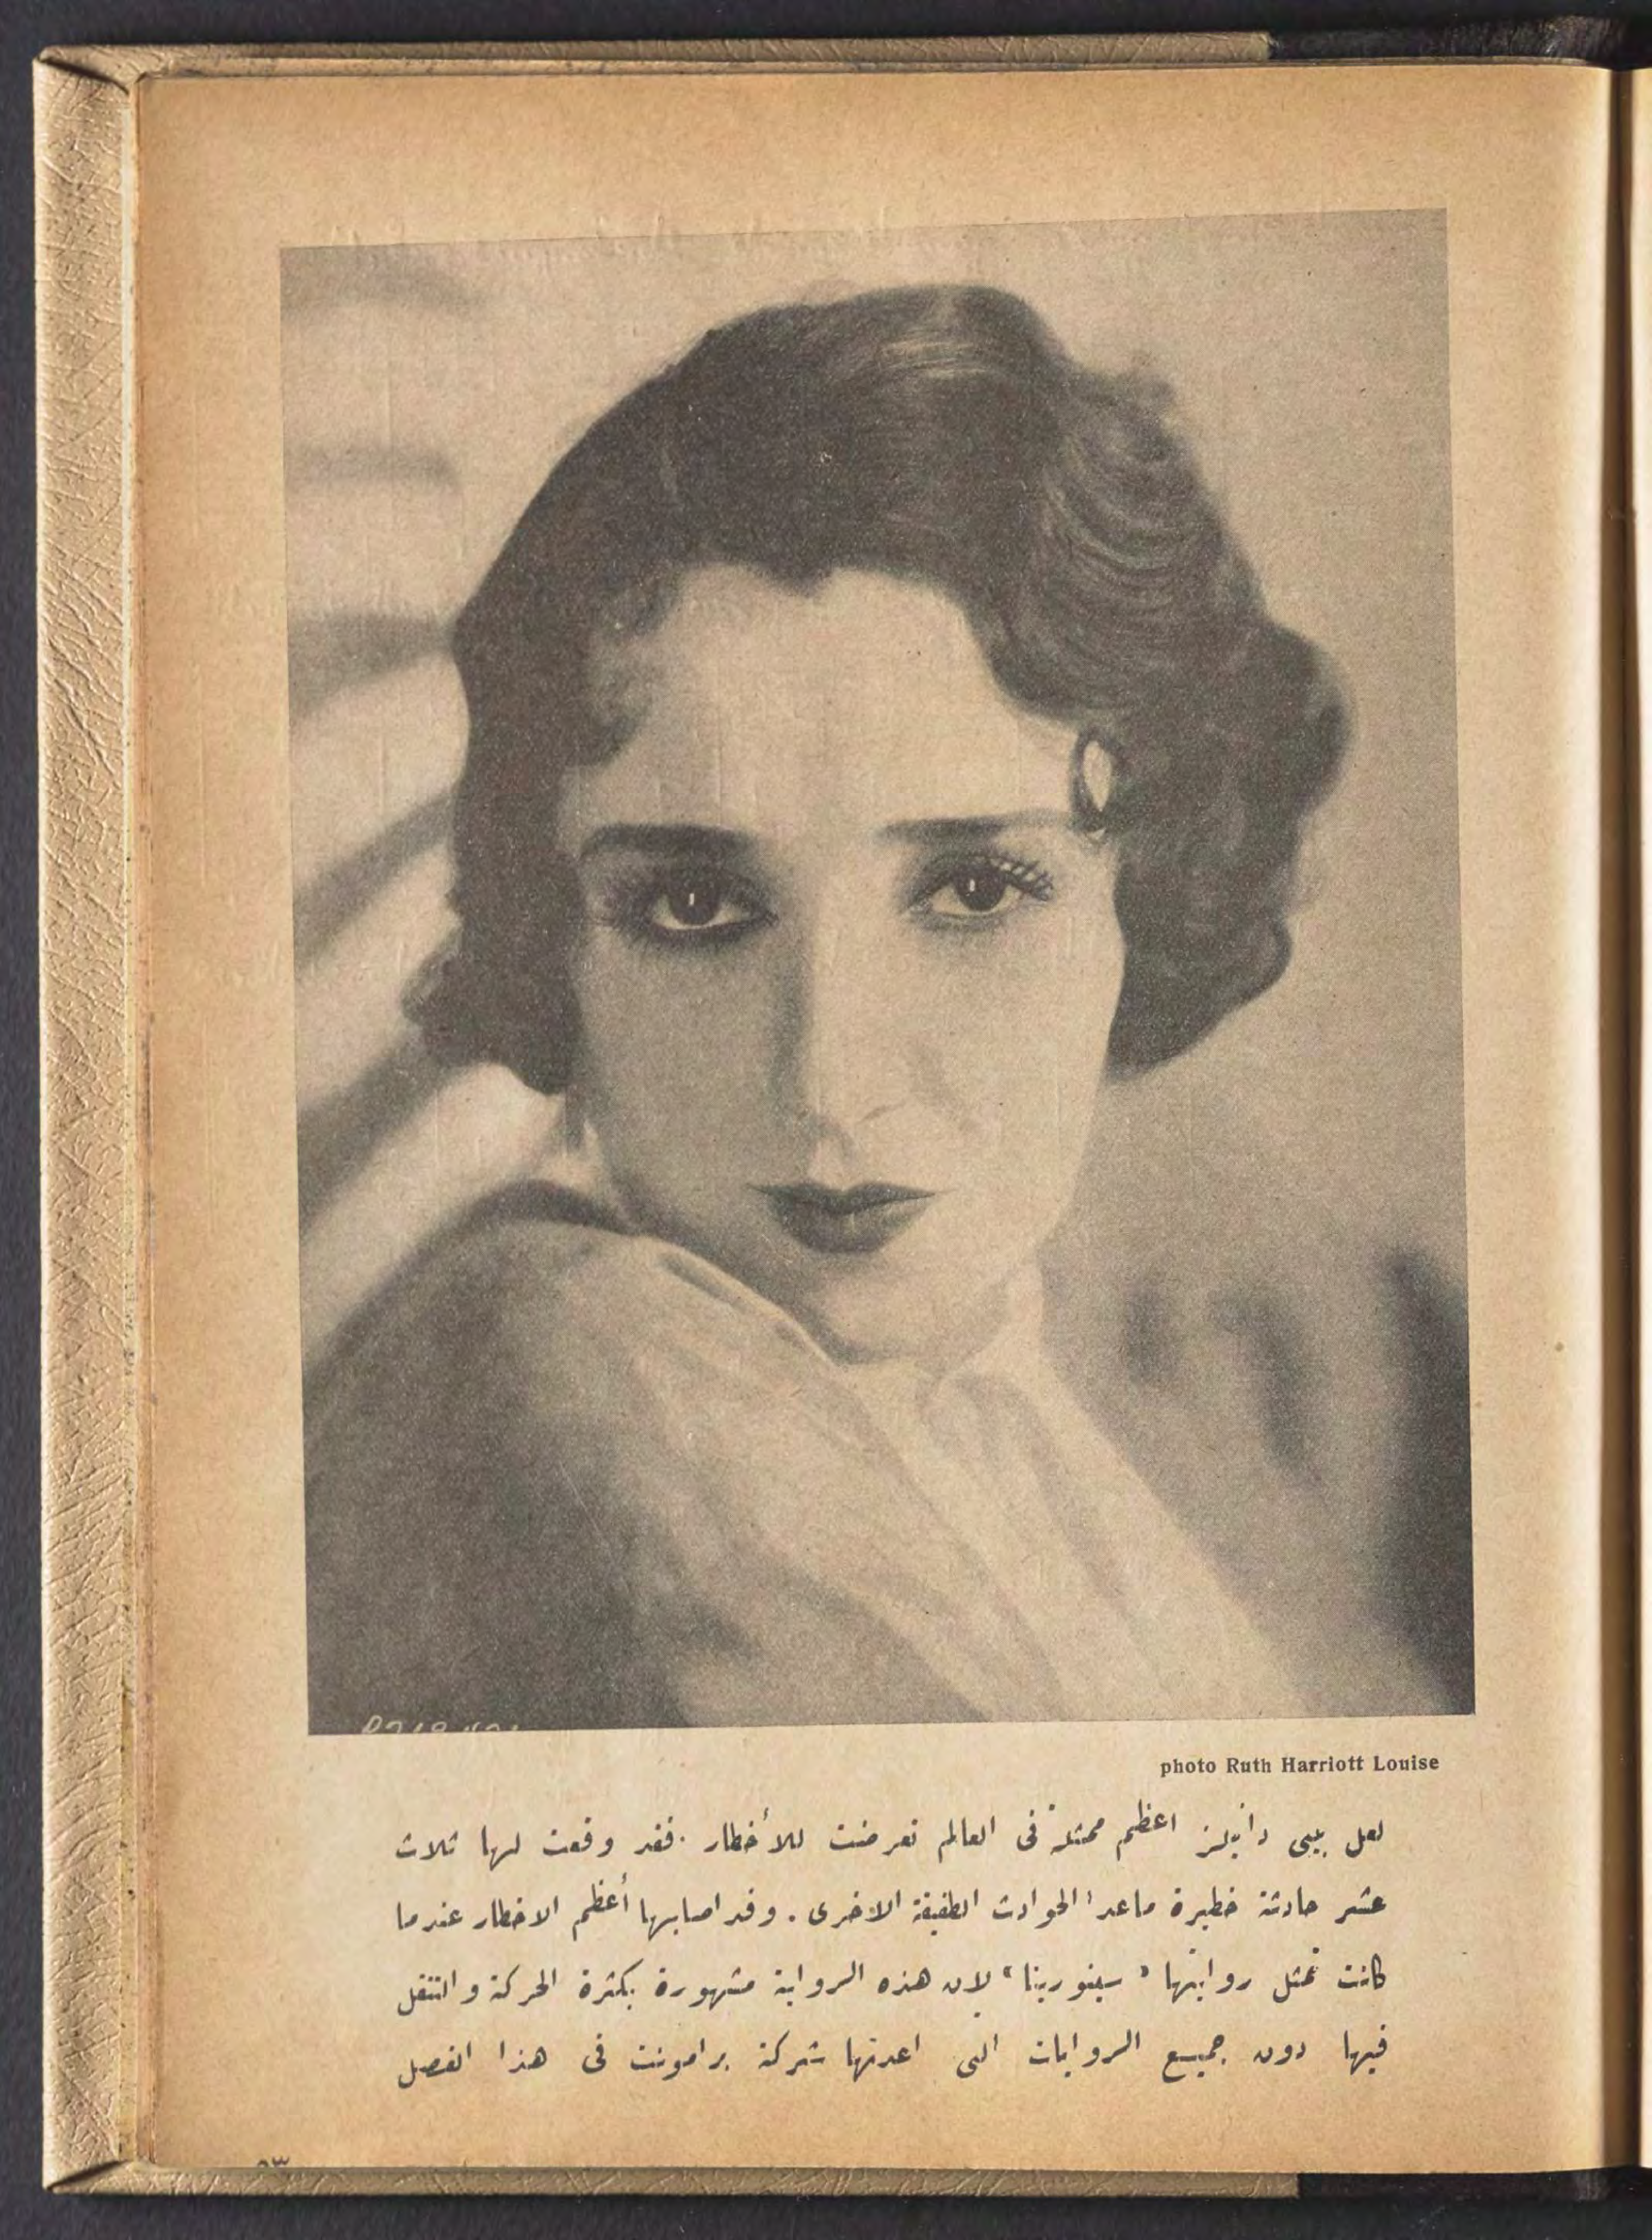 photo Ruth Harriott Louise
لعل بيبى دانيلز اعظم ممثلة فى العالم تعرضت للأخطار . فقد وقعت لها ثلاث
عشر حادثة خطيرة ماعدا الحوادث الطفيفة الاخرى . وقد اصابها أعظم الاخطار عندما
كانت تمثل روايتها « سينورينا » لان هذه الرواية مشهورة بكثرة الحركة والتنقل
فيها دون جميع الروايات التى اعدتها شركة برامونت فى هذا الفصل